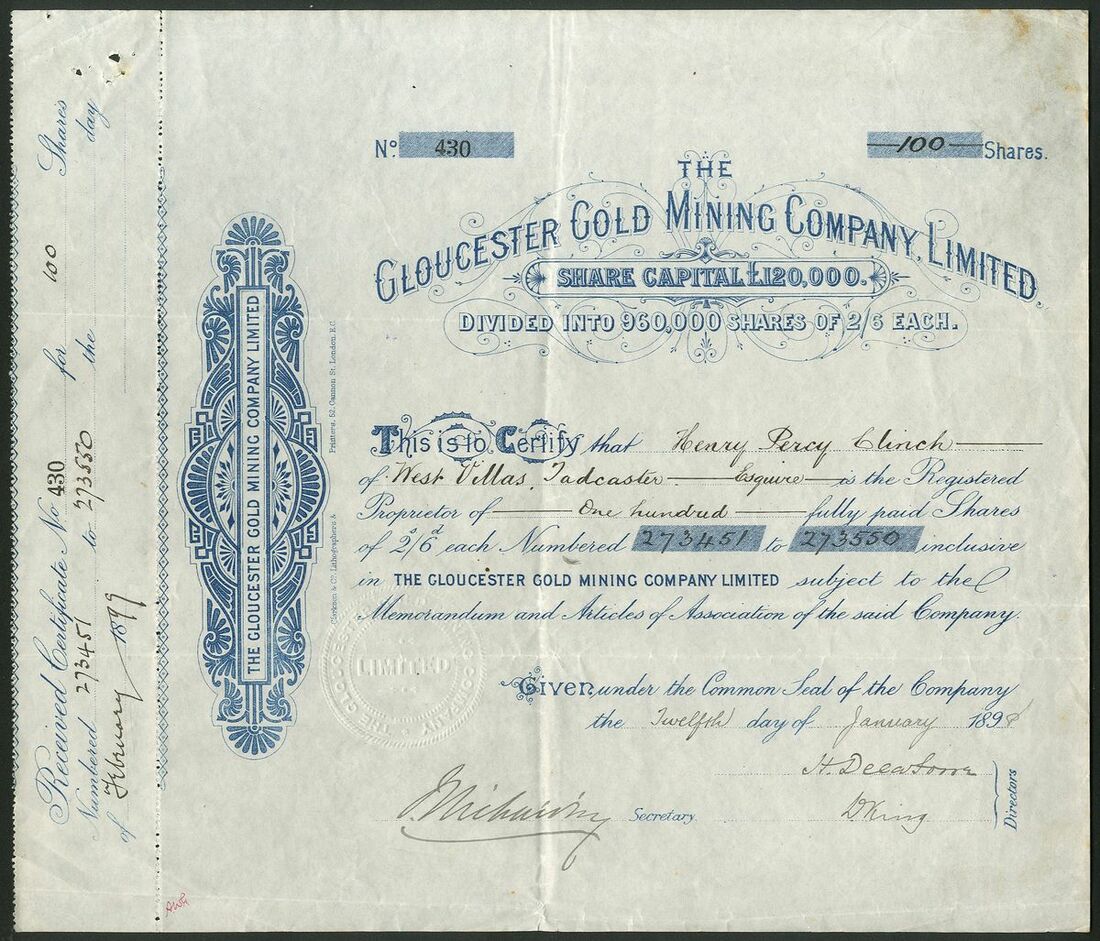 Received Certificate No 430 for 100 Shares
Numbered 273451 to 273550 the day
of February 1899
THE GLOUCESTER GOLD MINING COMPANY LIMITED
Clarkson & Co. Lithographers & Printers, 52, Cannon St. London. E.C.
No. 430
100 Shares.
THE
GLOUCESTER GOLD MINING COMPANY, LIMITED.
SHARE CAPITAL £120,000.
DIVIDED INTO 960,000 SHARES OF 2/6 EACH.
This is to Certify that Henry Percy Clinch
of West Villas, Tadcaster Esquire is the Registered
Proprietor of One hundred fully paid Shares
of 2s/6d each Numbered 273451 to 273550 inclusive
in THE GLOUCESTER GOLD MINING COMPANY LIMITED subject to the
Memorandum and Articles of Association of the said Company.
LIMITED
Given under the Common Seal of the Company
the Twelfth day of January 1898
Secretary.
DKing
Directors